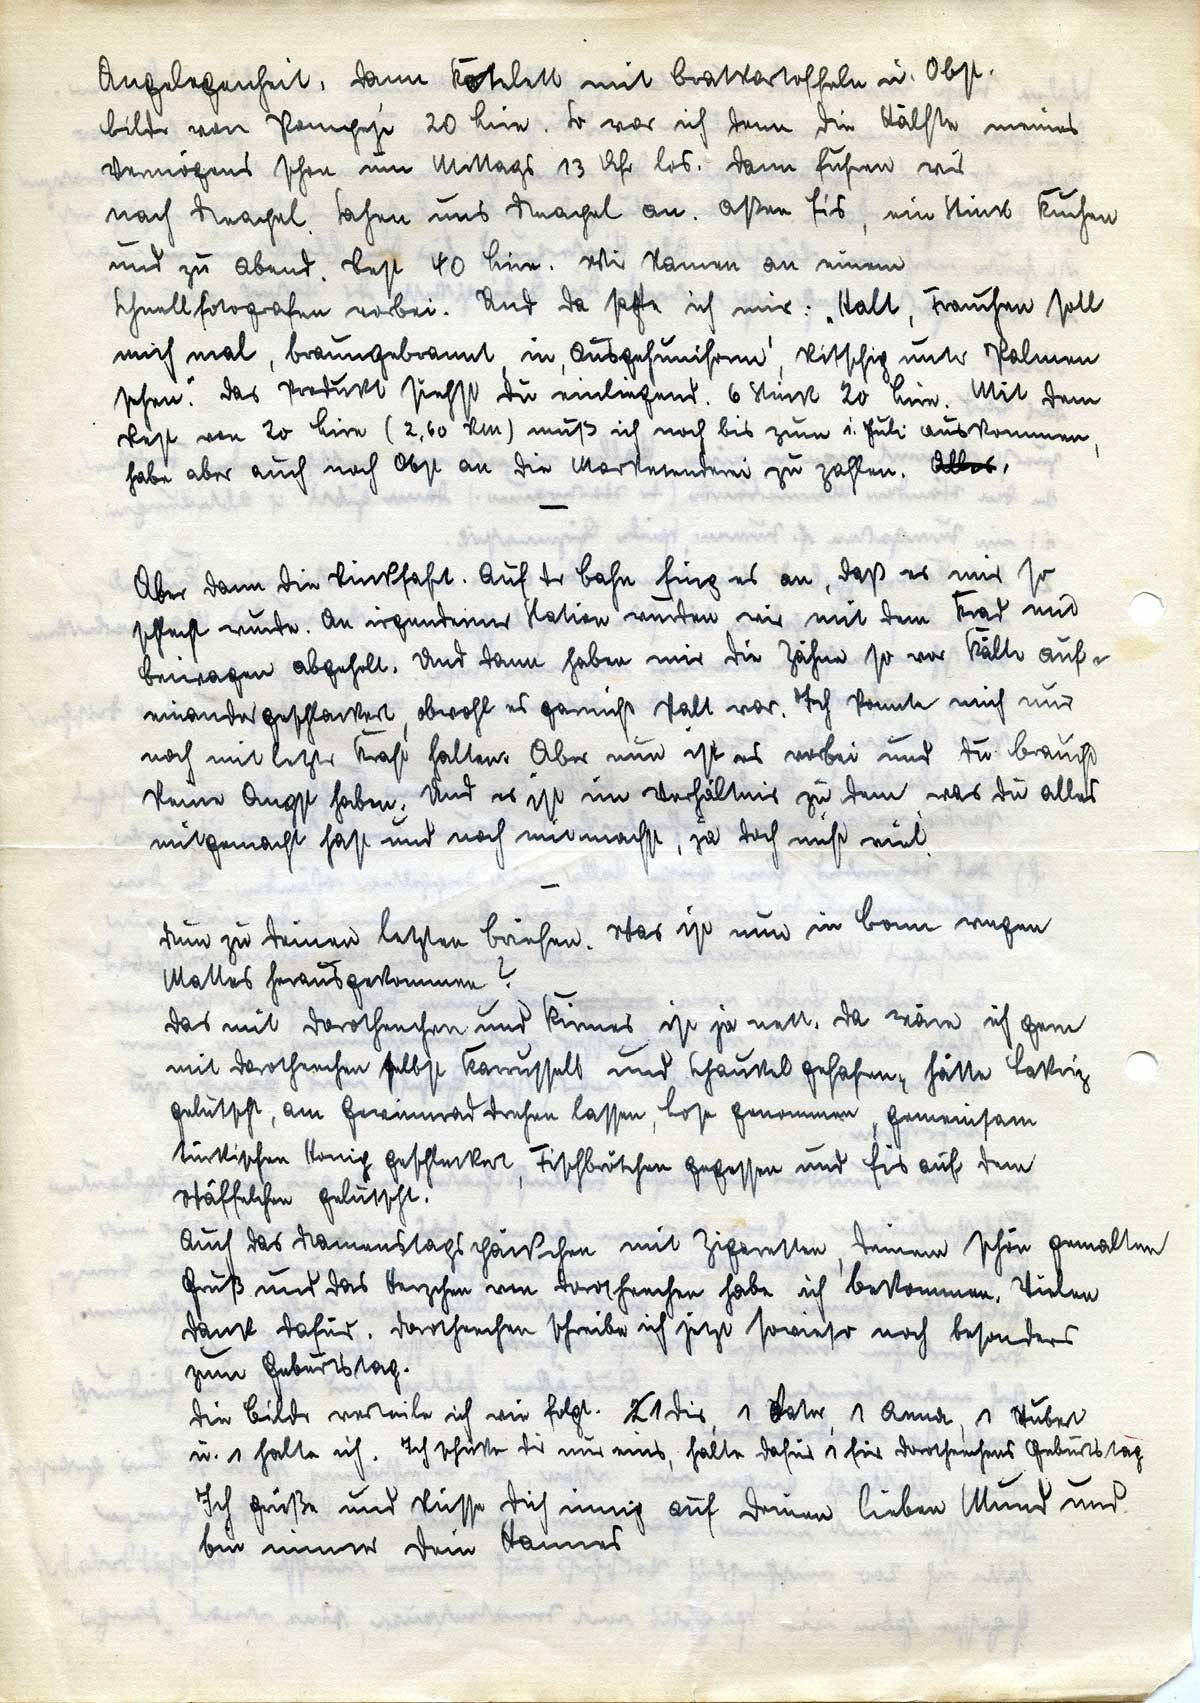 Angelegenheit, dann Kotelett mit Bratkartoffeln u. Obst.
Bilder von Pompeji 20 Lire. So war ich denn die Hälfte meines
Vermögens schon um Mittags 13 Uhr los. Dann fuhren wir
nach Neapel. Sahen uns Neapel an. Aßen Eis, ein Stück Kuchen
und zu Abend. Rest 40 Lire. Wir kamen an einem
Schnellfotografen vorbei. Und da sagte ich mir: „Halt, Frauchen soll
mich mal, braungebrannt, in ‚Ausgehuniform', kitschig unter Palmen
sehen." Das Produkt siehst Du einliegend. 6 Stück 20 Lire. Mit dem
Rest von 20 Lire (2,60 RM) muß ich noch bis zum 1. Juli auskommen,
habe aber auch noch Obst an die Marketenderei zu zahlen. Alles.
—
Aber dann die Rückfahrt. Auf der Bahn fing es an, daß es mir so
schlecht wurde. An irgendeiner Station wurden wir mit dem Krad mit
Beiwagen abgeholt. Und dann haben mir die Zähne so vor Kälte auf-
einandergeschlackert, obwohl es garnicht kalt war. Ich konnte mich nur
noch mit letzter Kraft halten. Aber nun ist es vorbei und Du brauchst
keine Angst haben. Und es ist im Verhältnis zu dem was Du alles
mitgemacht hast und noch mitmachst, ja doch nicht viel.
—
Nun zu Deinen letzten Briefen. Was ist nun in Bonn wegen
Mattes herausgekommen?
Das mit Dorotheechen und Kirmes ist ja nett. Da wäre ich gern
mit Dorotheechen selbst Karrussell und Schaukel gefahren, hätte Lakritz
gelutscht, am Gewinnrad drehen lassen, Lose genommen, gemeinsam
türkischen Honig geschleckert, Fischbrötchen gegessen und Eis auf dem
Wäffelchen gelutscht.
Auch das Namenstagspäckchen mit Zigaretten, Deinem schön gemalten
Gruß und das Herzchen von Dorotheechen habe ich bekommen. Vielen
Dank dafür. Dorotheechen schreibe ich jetzt sowieso noch besonders
zum Geburtstag.
Die Bilder verteile ich wie folgt. 1 Dir, 1 Vater, 1 Anna, 1 Hubert
u. 1 halte ich. Ich schicke Dir nur eins, halte dafür 1 für Dorotheechens Geburtstag
Ich grüße und küsse Dich innig auf Deinen lieben Mund und
bin immer Dein Hannes